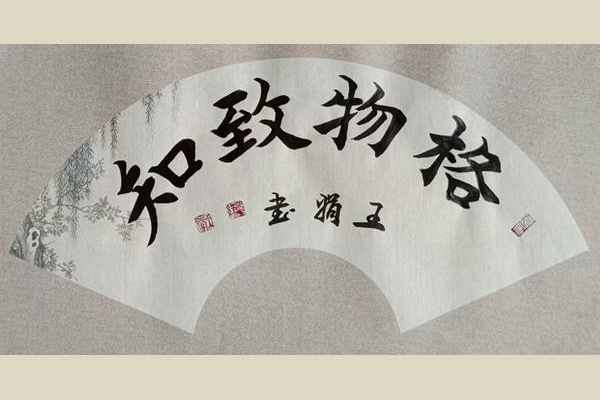 格物致知
王娟书